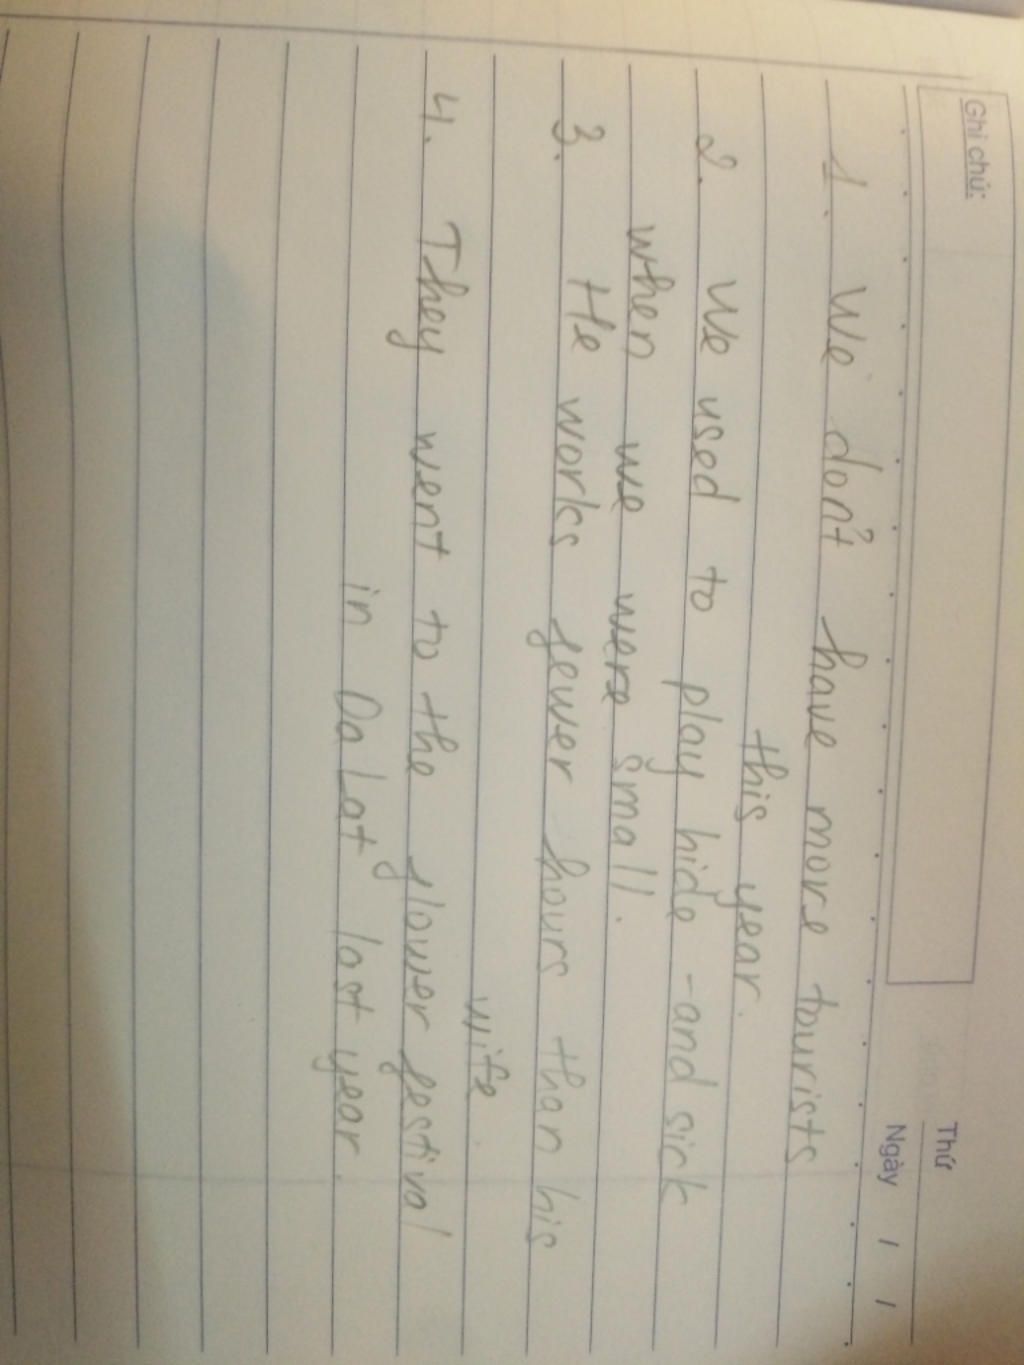 Ghi chú:
Thứ
Ngày / /
1. We don't have more tourists
this year.
2. We used to play hide-and sick
when we were small.
3. He works fewer hours than his
wife.
4. They went to the flower festival
in Da Lat last year.